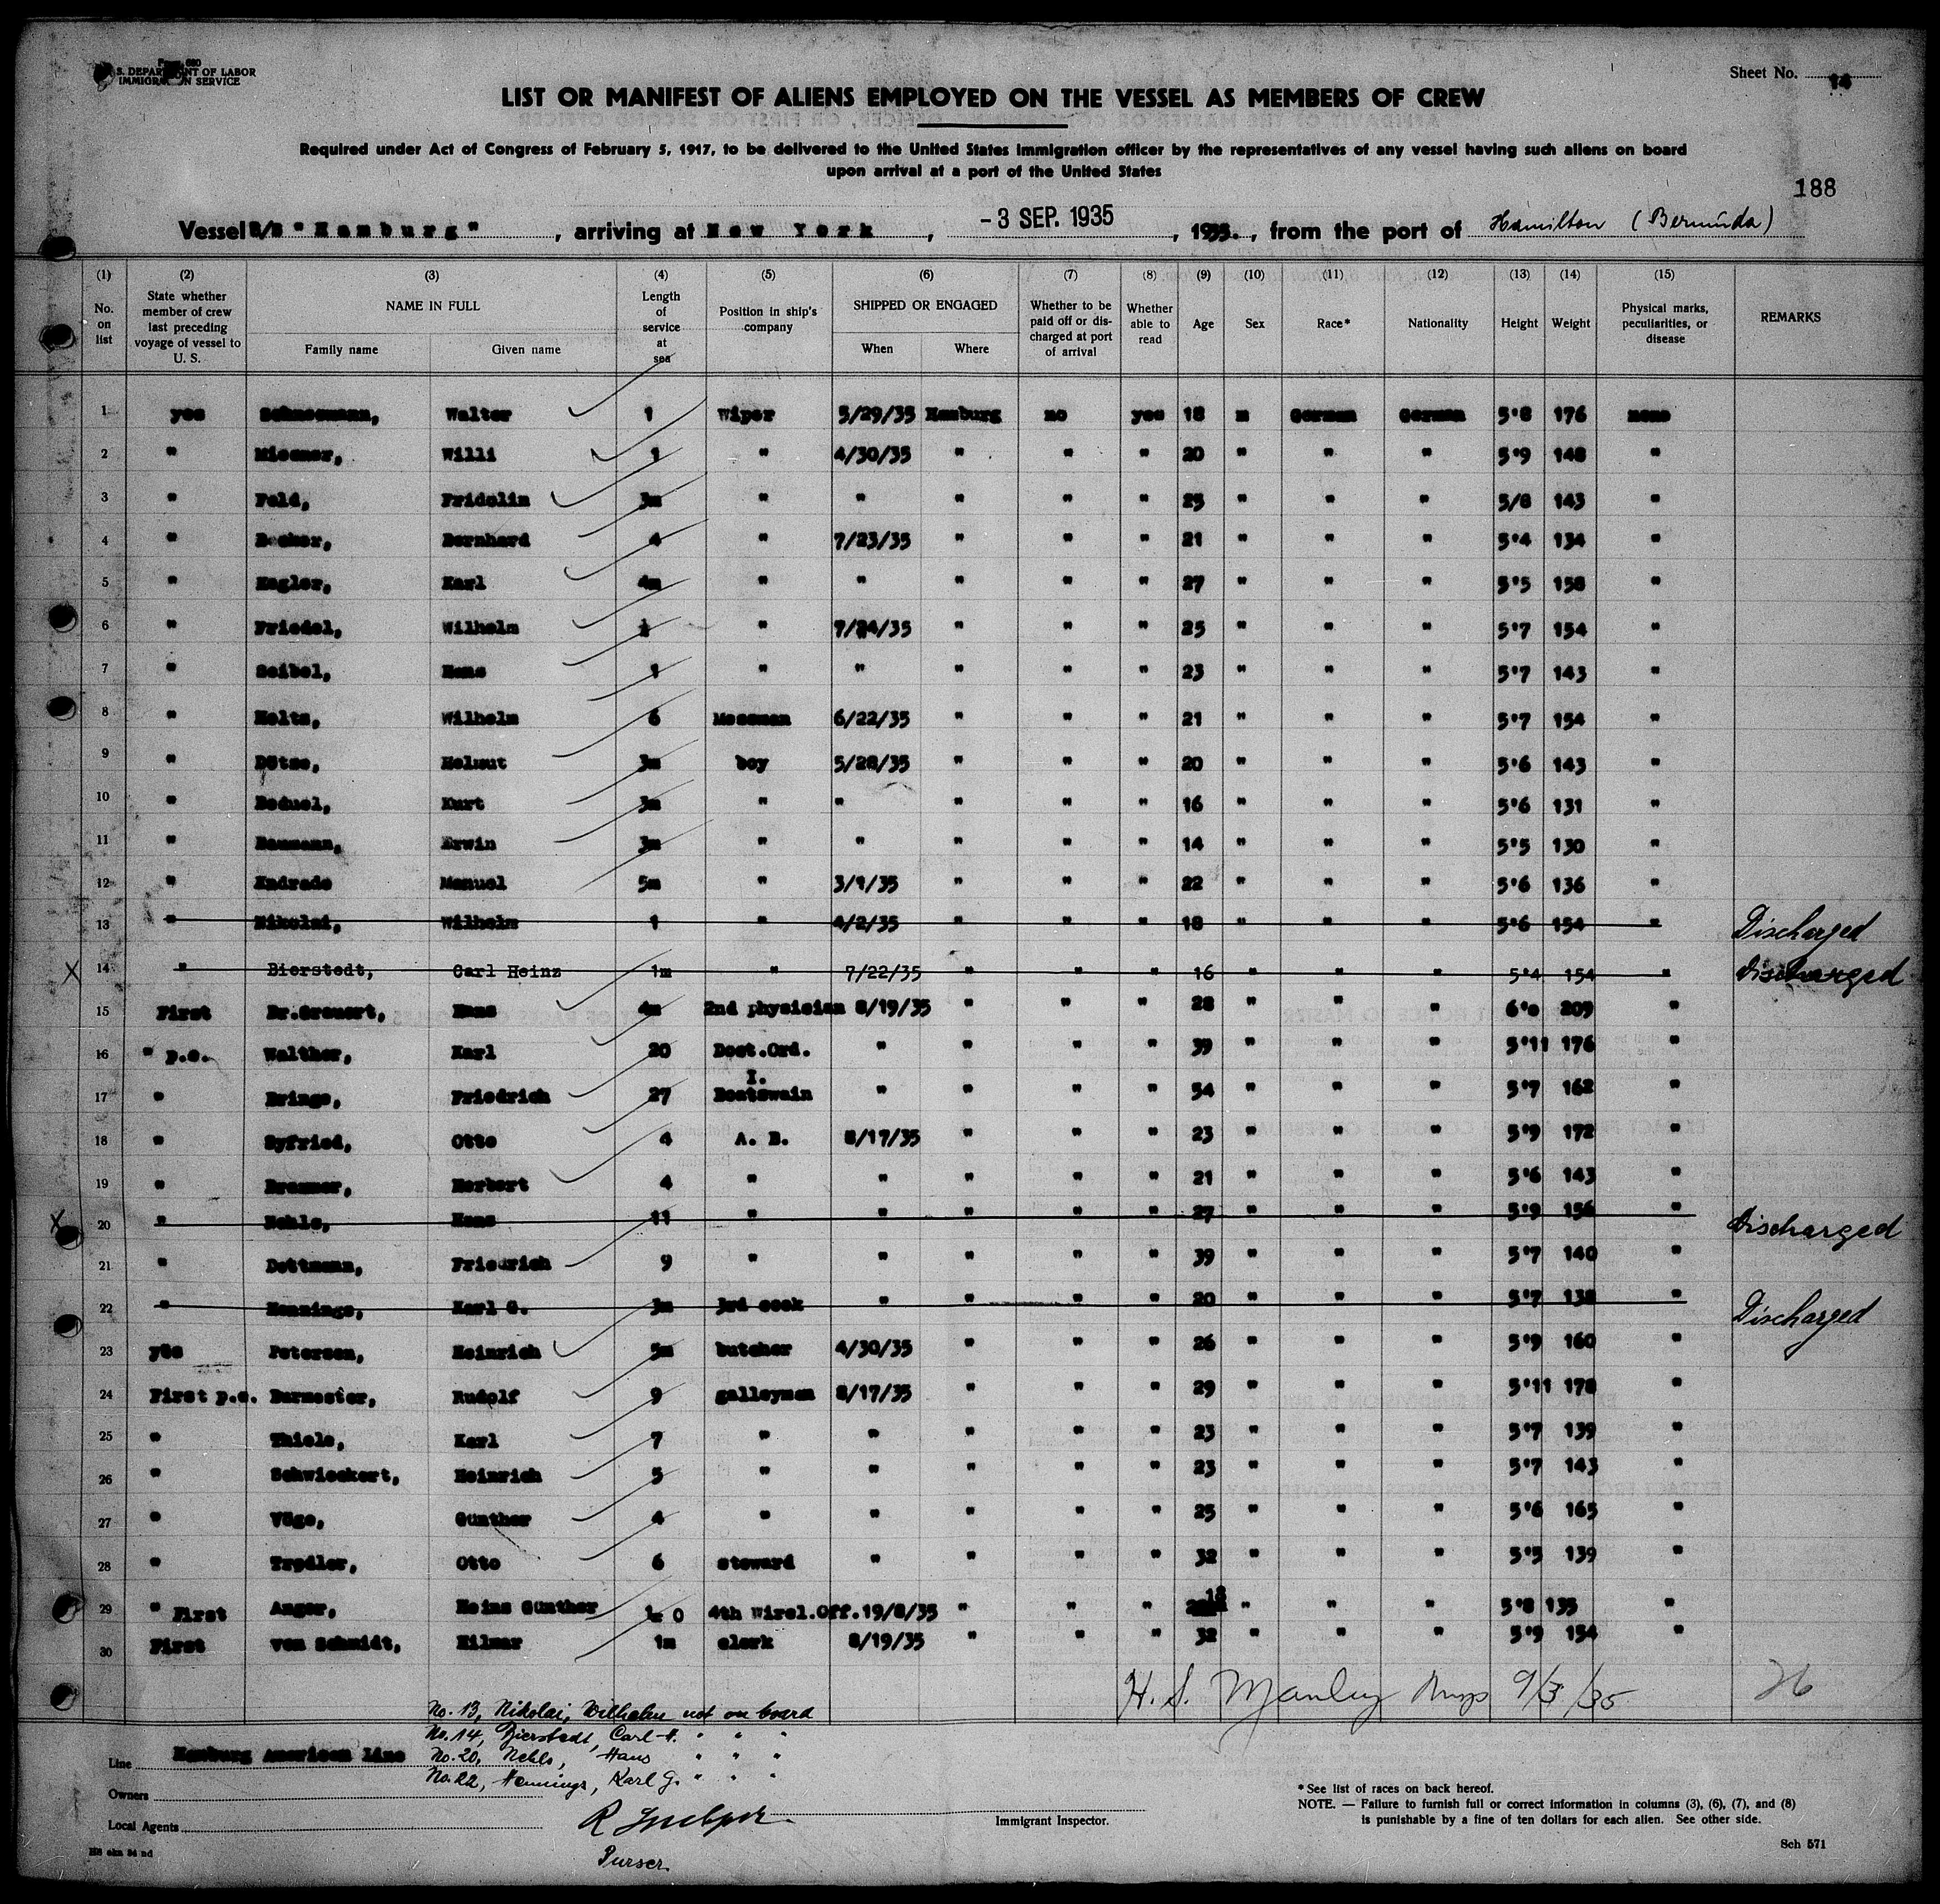 Form 680
U. S. DEPARTMENT OF LABOR
IMMIGRATION SERVICE
Sheet No. 14
LIST OR MANIFEST OF ALIENS EMPLOYED ON THE VESSEL AS MEMBERS OF CREW
Required under Act of Congress of February 5, 1917, to be delivered to the United States immigration officer by the representatives of any vessel having such aliens on board
upon arrival at a port of the United States
188
Vessel S/S "Hamburg", arriving at New York, -3 SEP. 1935, 1935., from the port of Hamilton (Bermuda)
(1) (2) (3) (4) (5) (6) (7) (8) (9) (10) (11) (12) (13) (14) (15)
No. on list State whether member of crew last preceding voyage of vessel to U. S. NAME IN FULL Family name Given name Length of service at sea Position in ship's company SHIPPED OR ENGAGED When Where Whether to be paid off or discharged at port of arrival Whether able to read Age Sex Race* Nationality Height Weight Physical marks, peculiarities, or disease REMARKS
1 yes Walter 1 Wiper 5/29/35 Hamburg no yes 18 m German German 5'8 176 none
2 " Willi 1 " 4/30/35 " " " 20 " " " 5'9 148 "
3 " Feld, Fridolin 3m " " " " " 25 " " " 5/8 143 "
4 " Becker, Bernhard 4 " 7/23/35 " " " 21 " " " 5'4 134 "
5 " Karl 4m " " " " " 27 " " " 5'5 158 "
6 " Friedel, Wilhelm " 7/24/35 " " " 25 " " " 5'7 154 "
7 " Seibel, Hans 1 " " " " " 23 " " " 5'7 143 "
8 " Wilhelm 6 Messman 6/22/35 " " " 21 " " " 5'7 154 "
9 " Helmut 3m boy 5/28/35 " " " 20 " " " 5'6 143 "
10 " Kurt 3m " " " " " 16 " " " 5'6 131 "
11 " Baumann, Erwin 3m " " " " " 14 " " " 5'5 130 "
12 " Andrade Manuel 5m " 3/1/35 " " " 22 " " " 5'6 136 "
13 " Nikolai, Wilhelm 1 " 4/2/35 " " " 18 " " " 5'6 154 " Discharged
14 " Bierstedt, Carl Heinz 1m " 7/22/35 " " " 16 " " " 5'4 154 " Discharged
15 First Dr.Greuert, Hans 4m 2nd physician 8/19/35 " " " 28 " " " 6'0 209 "
16 " p.e. Walther, Karl 20 " " " " 39 " " " 5'11 176 "
17 " Brings, Friedrich 27 I. Boatswain " " " " 54 " " " 5'7 162 "
18 " Syfried, Otto 4 A. B. 8/17/35 " " " 23 " " " 5'9 172 "
19 " Herbert 4 " " " " " 21 " " " 5'6 143 "
20 " Nehls, Hans 11 " " " " " 27 " " " 5'9 156 " Discharged
21 " Dettmann, Friedrich 9 " " " " " 39 " " " 5'7 140 "
22 " Hennings, Karl G. 3m 3rd cook " " " " 20 " " " 5'7 138 " Discharged
23 yes Petersen, Heinrich 5m butcher 4/30/35 " " " 26 " " " 5'9 160 "
24 First p.e. Burmester, Rudolf 9 galleyman 8/17/35 " " " 29 " " " 5'11 178 "
25 " Thiele, Karl 7 " " " " " 23 " " " 5'7 139 "
26 " Schwieckert, Heinrich 5 " " " " " 23 " " " 5'7 143 "
27 " Vöge, Günther 4 " " " " " 25 " " " 5'6 165 "
28 " Otto 6 steward " " " " 32 " " " 5'5 139 "
29 " First Anger, Heinz Günther 0 4th Wirel.Off. 19/8/35 " " " 18 " " " 5'8 135 "
30 First von Schmidt, Hilmar 1m clerk 8/19/35 " " " 32 " " " 5'9 154 "
H. S. Manley Insp 9/3/35 26
No. 13, Nikolai, Wilhelm not on board
No. 14, Bierstedt, Carl H. " " "
No. 20, Nehls, Hans " " "
No. 22, Hennings, Karl G. " " "
Line Hamburg American Line
Owners
Local Agents
Purser
Immigrant Inspector.
*See list of races on back hereof.
NOTE. — Failure to furnish full or correct information in columns (3), (6), (7), and (8)
is punishable by a fine of ten dollars for each alien. See other side.
Sch 571